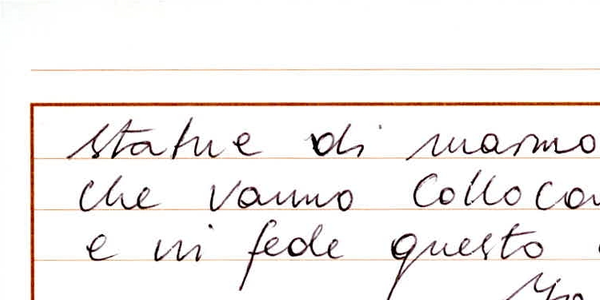 statue di marmo
che vanno colloca
e in fede questo